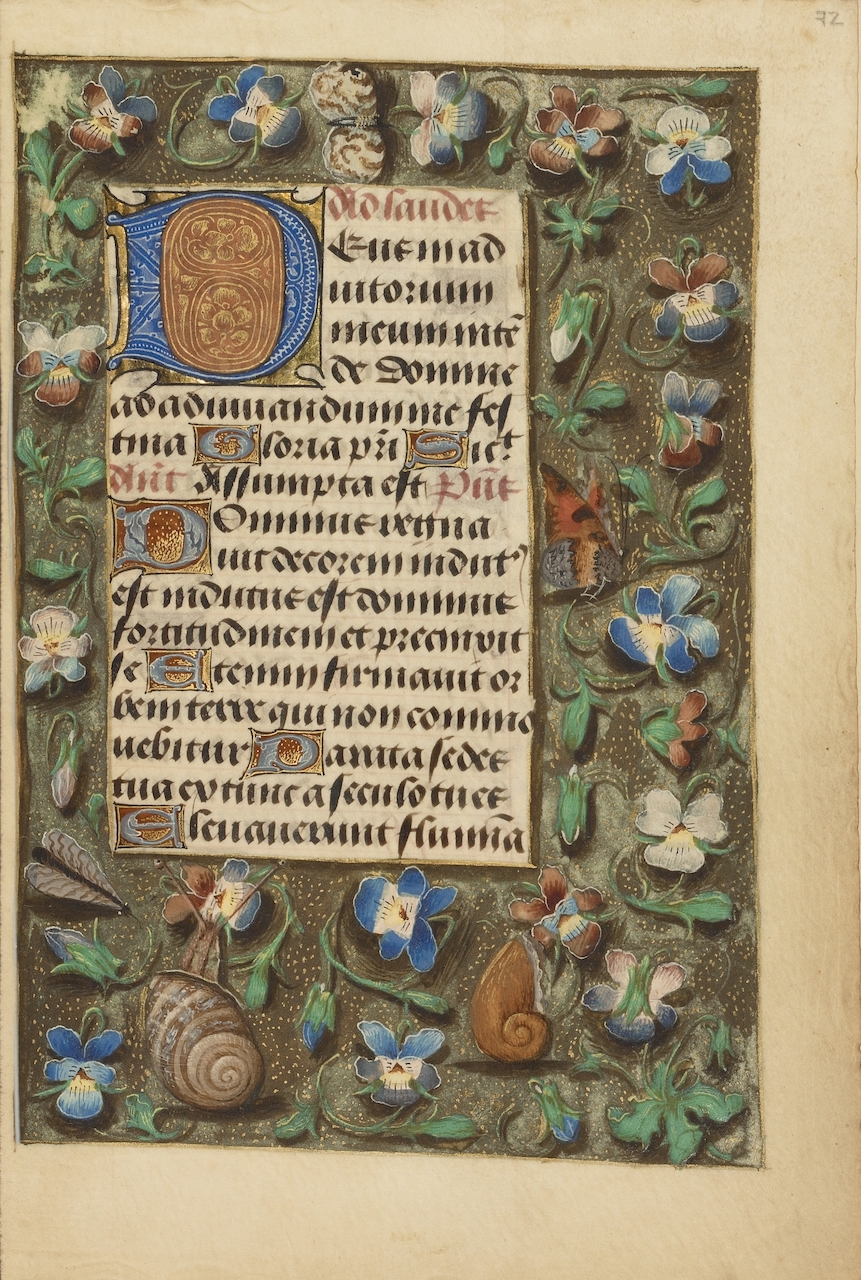 72
Ad laudes
Deus in ad
iutorium
meum intē
de Domine
ad adiuuandum me fes
tina Gloria pri Sict
Ant Assumpta est Ps
Dominus regna
uit decorem indutꝰ
est indutus est dominus
fortitudinem et precinxit
se Etenim firmauit or
bem terre qui non commo
uebitur Parata sedes
tua ex tunc a seculo tu es
Eleuauerunt flumīa